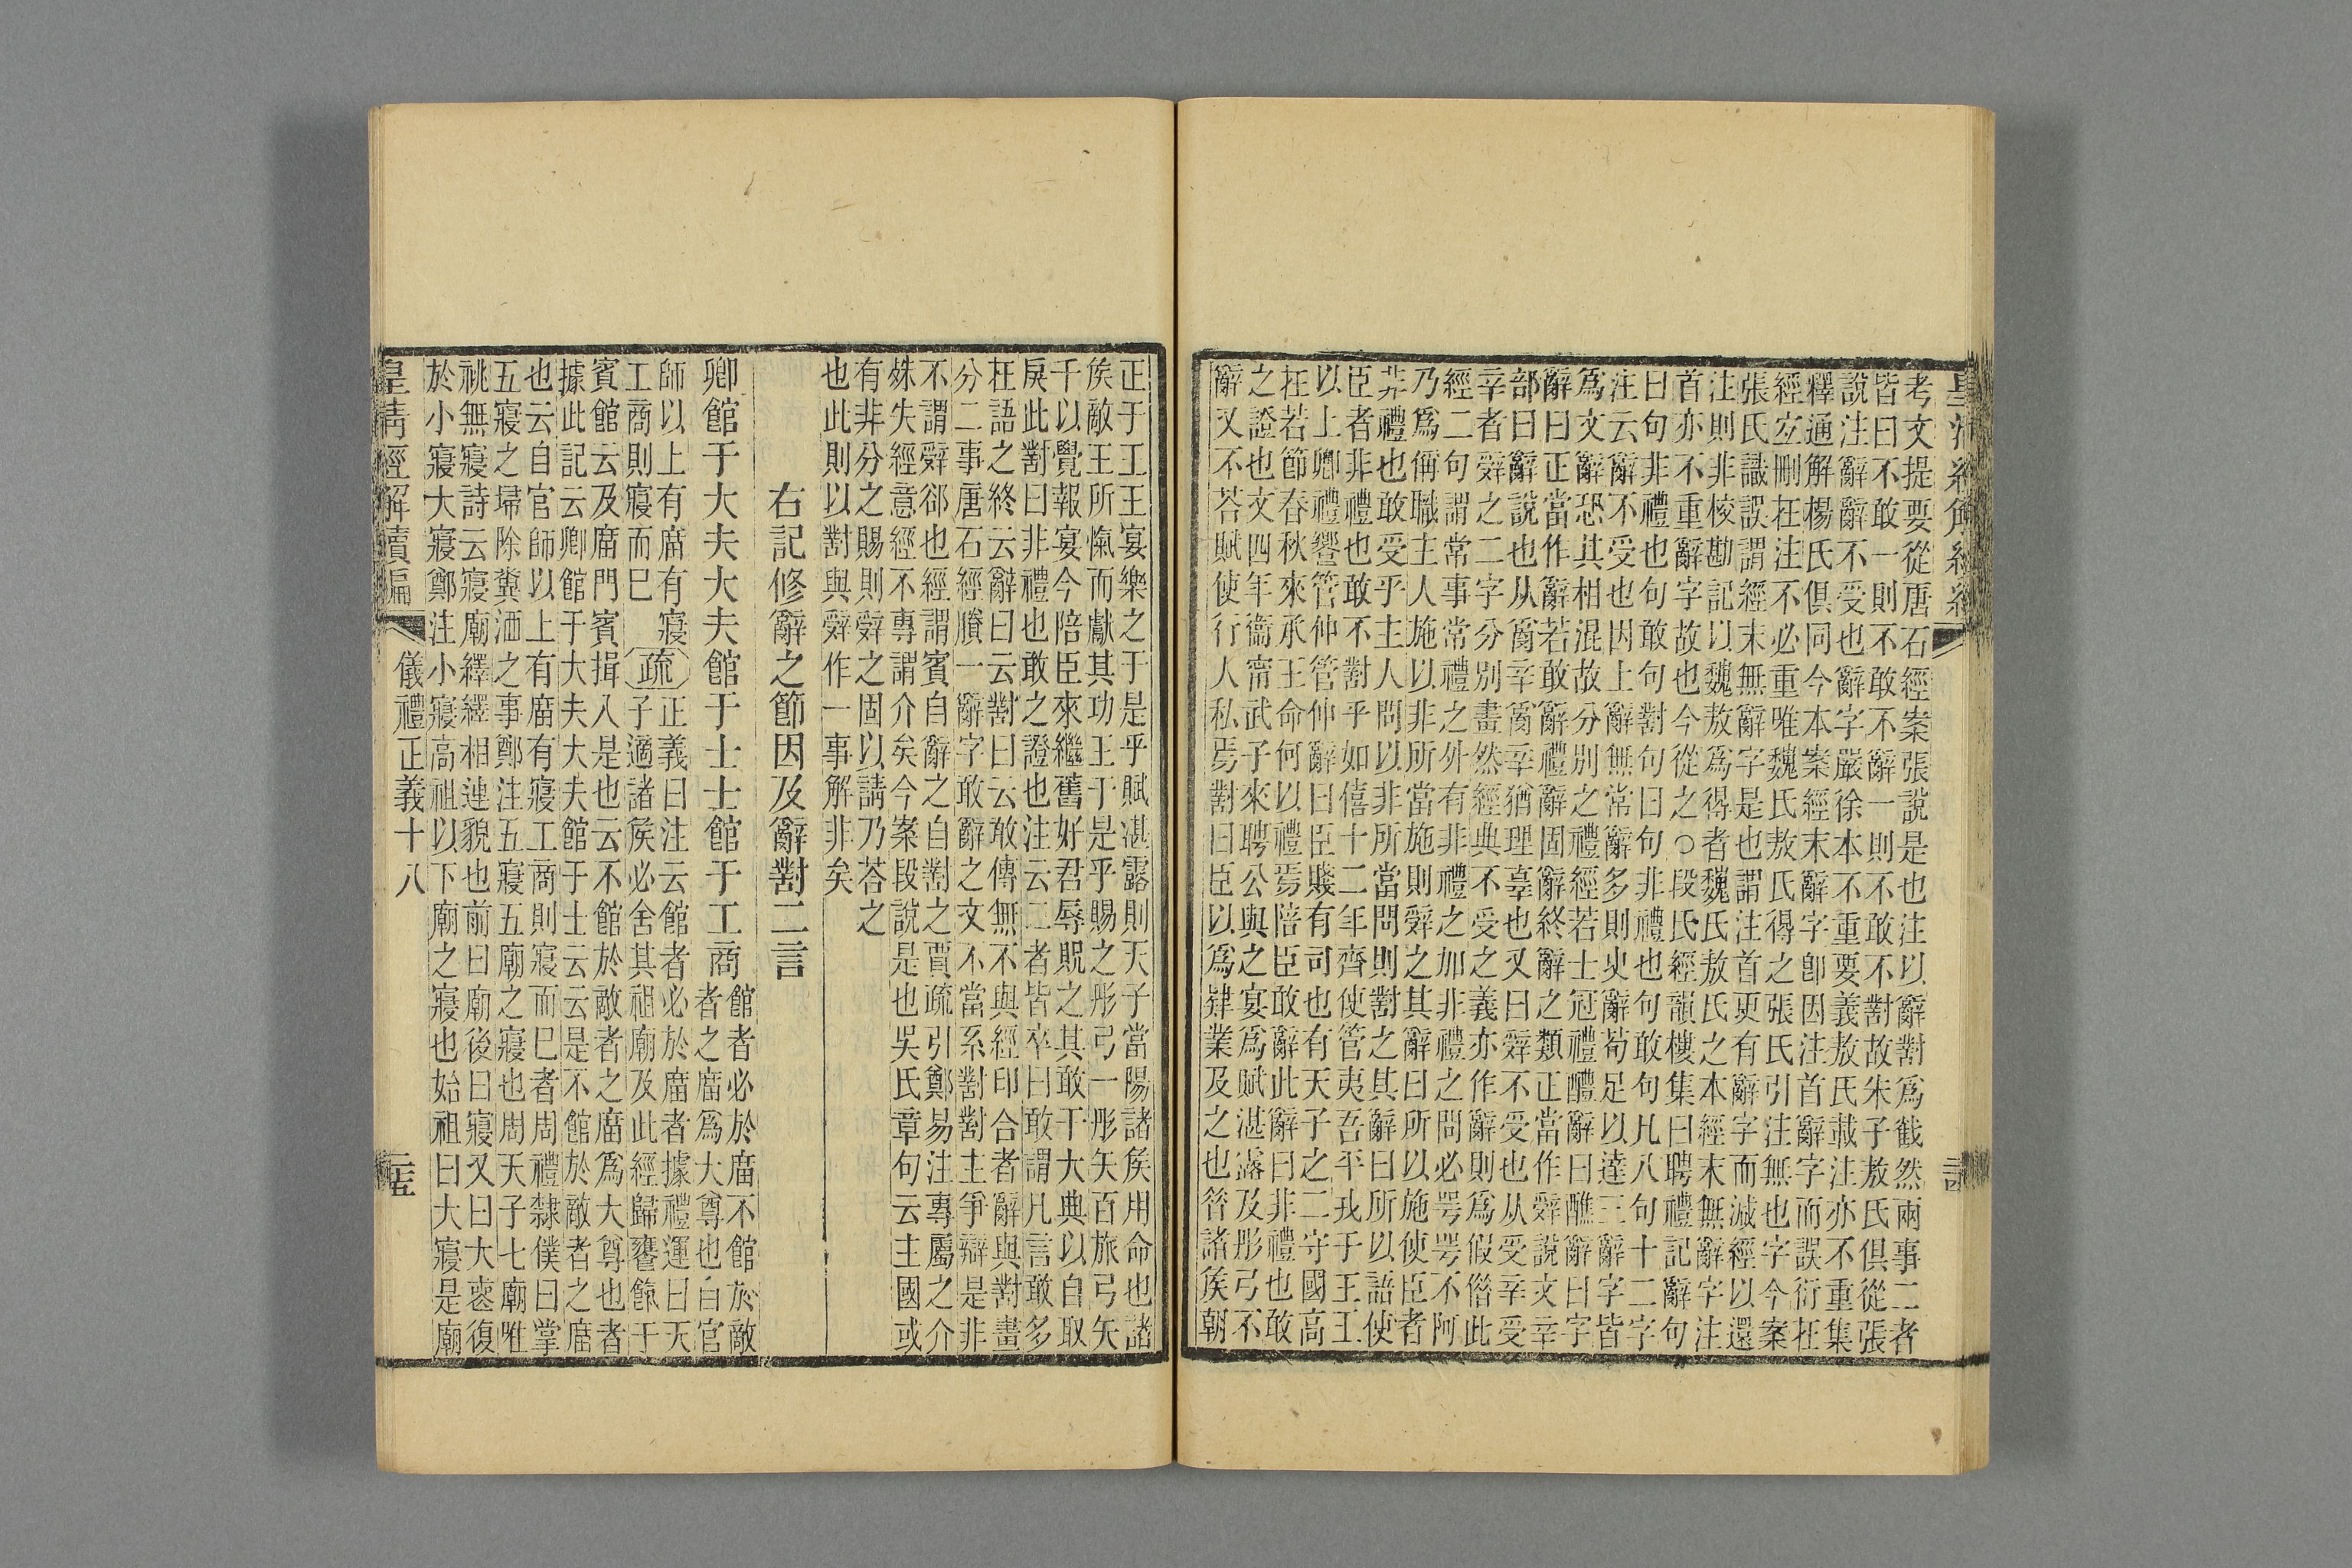 考文提要從唐石經案張說是也注以辭對爲截然兩事二者
皆曰不敢一則不敢不辭一則不敢不對故朱子敖氏俱從張
說注辭辭不受也辭字嚴徐本不重要義敖氏載注亦不重集
釋通解楊氏俱同今本案經末辭字卽因注首辭字而誤衍在
經立刪在注不必重唯魏氏敖氏得之張氏引注無也字今案
張氏識誤謂經末無辭字是也謂注首更有辭字而滅經以還
注則非校勘記以魏敖爲得者魏氏敖氏之本經末無辭字注
首亦不重辭字故也今從之○段氏經韻樓集曰聘禮記辭句
曰句非禮也句敢句對句曰句非禮也句敢句凡八句十二字
注云辭不受也因上辭無常辭多則史辭苟足以達三辭字皆
爲文辭恐其相混故分別之禮經若士冠禮醴辭曰醮辭曰字
辭曰正當作辭若敢辭禮辭固辭終辭之類正當作辤說文辛
部曰辭說也从𤔔辛𤔔辛猶理辜也又曰辤不受也从受辛受
辛者辤之二字分別畫然經典不受之義亦作辭則爲假借此
經二句謂常事常禮之外有非禮之加非禮之問必咢咢不阿
乃爲偁職主人施以非所當施則辤之其辭曰所以施使臣者
非禮也敢受乎主人問以非所當問則對之其辭曰所以語使
臣者非禮也敢不對乎如僖十二年齊使管夷吾平戎于王王
以上卿禮響管仲管仲辭曰臣賤有司也有天子之二守國高
在若節春秋來承王命何以禮焉陪臣敢辭此辭曰非禮也敢
之證也文四年衞甯武子來聘公與之宴爲賦湛露及彤弓不
辭又不荅賦使行人私焉對曰臣以爲肄業及之也昝諸矦朝
正于王王宴樂之于是乎賦湛露則天子當陽諸矦用命也諸
矦敵王所愾而獻其功王于是乎賜之彤弓一彤矢百旅弓矢
千以覺報宴今陪臣來繼舊好君辱貺之其敢干大典以自取
戾此對曰非禮也敢之證也注云二者皆卒曰敢謂凡言敢多
在語之終云辭曰云對曰云敢傳無不與經印合者辭與對畫
分二事唐石經賸一辭字敢辭之文不當系對對主爭辯是非
不謂辤郤也經謂賓自辭之自對之賈疏引鄭易注專屬之介
殊失經意經不專謂介矣今案段說是也吳氏章句云主國或
有非分之賜則辤之固以請乃荅之
也此則以對與辤作一事解非矣
右記修辭之節因及辭對二言
卿館于大夫大夫館于士士館于工商館者必於廟不館於敵
者之廟爲大尊也自官
師以上有廟有寢
工商則寢而巳疏正義曰注云館者必於廟者據禮運曰天
子適諸矦必舍其祖廟及此經歸饔餼于
賓館云及廟門賓揖入是也云不館於敵者之廟爲大尊也者
據此記云卿館于大夫大夫館于士云云是不館於敵者之廟
也云自官師以上有廟有寢工商則寢而巳者周禮隸僕曰掌
五寢之埽除糞洒之事鄭注五寢五廟之寢也周天子七廟唯
祧無寢詩云寢廟繹繹相連貌也前曰廟後曰寢又曰大喪復
於小寢大寢鄭注小寢高祖以下廟之寢也始祖曰大寢是廟
皇淸經解續編
儀禮正義十八